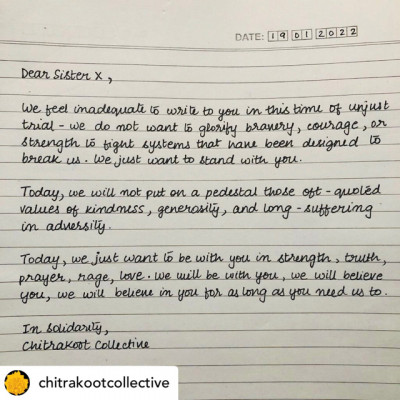 DATE: 19 01 2022
Dear Sister X,
We feel inadequate to write to you in this time of unjust
trial - we do not want to glorify bravery, courage, or
strength to fight systems that have been designed to
break us. We just want to stand with you.
Today, we will not put on a pedestal those oft-quoted
values of kindness, generosity, and long-suffering
in adversity.
Today, we just want to be with you in strength, truth,
prayer, rage, love. We will be with you, we will believe
you, we will believe in you for as long as you need us to.
In Solidarity,
Chitrakoot Collective
chitrakootcollective